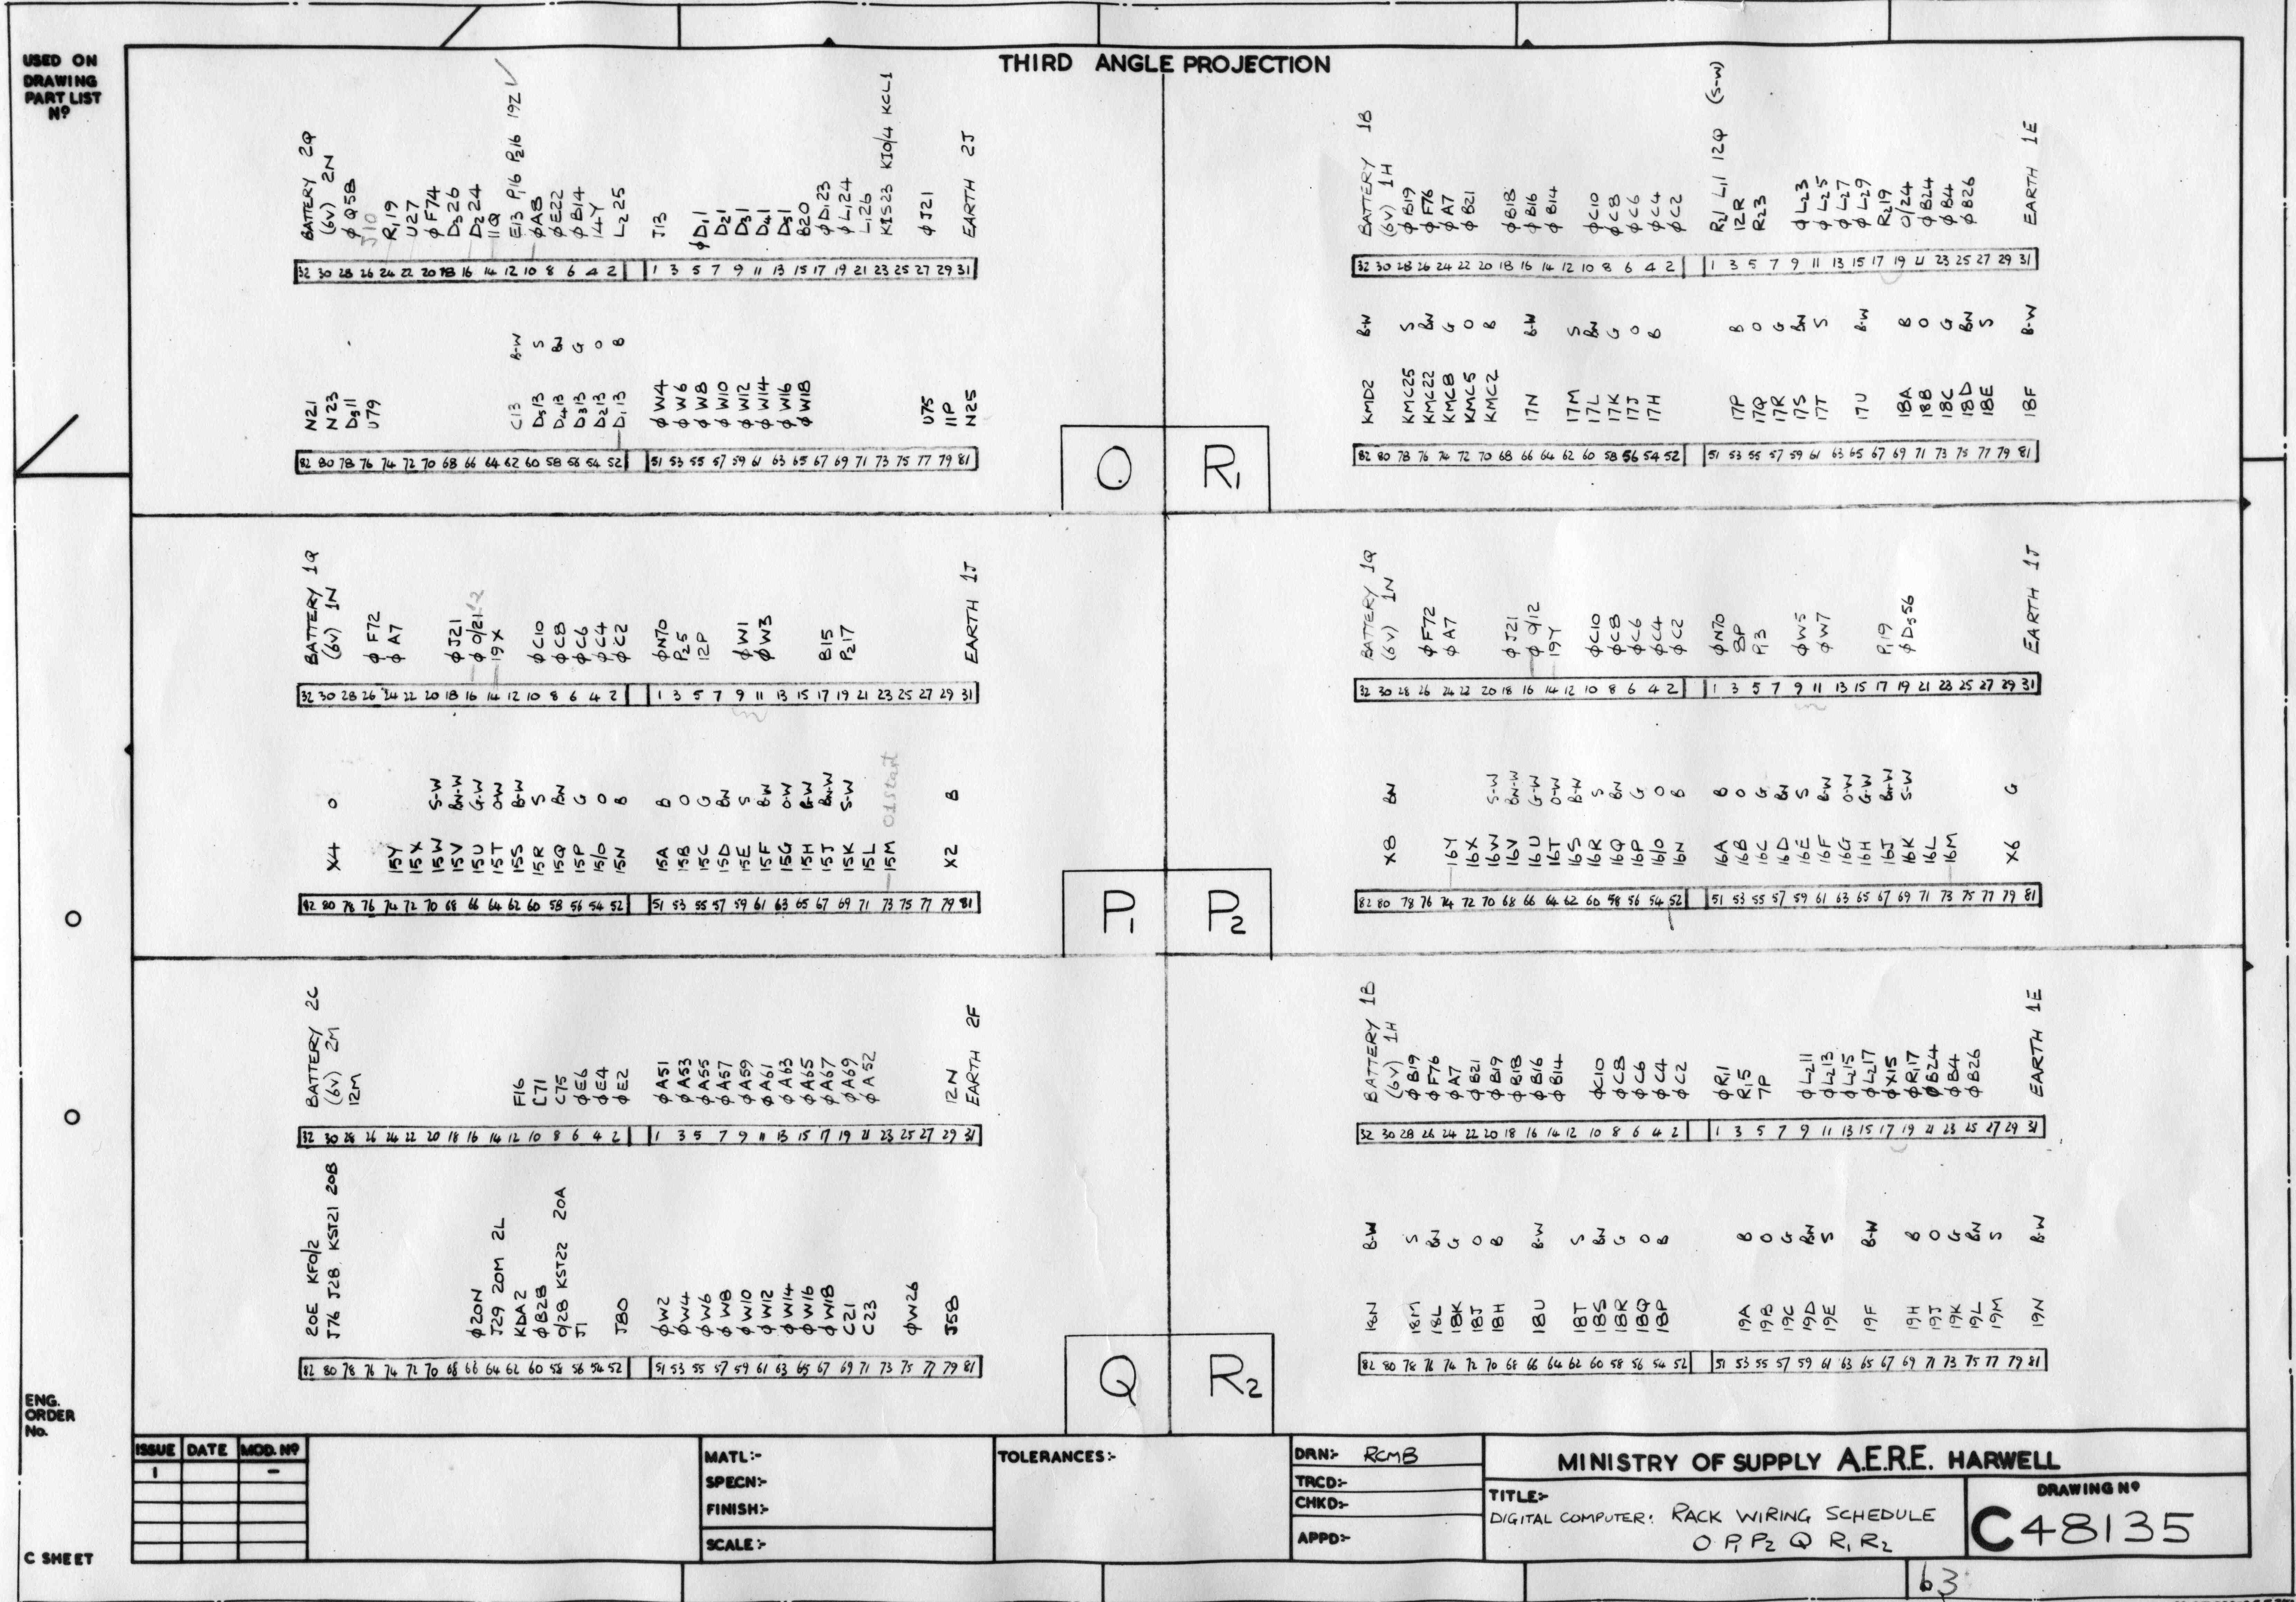 USED ON
DRAWING
PART LIST
Nº
THIRD ANGLE PROJECTION
BATTERY 2Q
(6V) 2N
φ Q58
J10
R₁19
U27
φ F74
D₃26
D₂24
11Q
E13 P₁16 P₂16 19Z
φA8
φE22
φB14
14Y
L₂25
J13
φD₁1
D₂1
D₃1
D₄1
D₅1
B20
φD₁23
φL₁24
L₁26
KIS23 KIO/4 KCL1
φJ21
EARTH 2J
32 30 28 26 24 22 20 18 16 14 12 10 8 6 4 2 1 3 5 7 9 11 13 15 17 19 21 23 25 27 29 31
B-W
S
BN
G
O
B
N21
N23
D₅11
U79
C13
D₅13
D₄13
D₃13
D₂13
D₁13
φW4
φW6
φW8
φW10
φW12
φW14
φW16
φW18
U75
11P
N25
82 80 78 76 74 72 70 68 66 64 62 60 58 56 54 52 51 53 55 57 59 61 63 65 67 69 71 73 75 77 79 81
O
BATTERY 1B
(6V) 1H
φB19
φF76
φA7
φB21
φB18
φB16
φB14
φC10
φC8
φC6
φC4
φC2
R₂1 L₁1 12Q (S-W)
12R
R₂3
φL₂3
φL₂5
φL₂7
φL₂9
R₂19
O/24
φB24
φB4
φB26
EARTH 1E
32 30 28 26 24 22 20 18 16 14 12 10 8 6 4 2 1 3 5 7 9 11 13 15 17 19 21 23 25 27 29 31
B-W
S
BN
G
O
B
B-W
S
BN
G
O
B
B
O
G
BN
S
B-W
B
O
G
BN
S
B-W
KMD2
KMC25
KMC22
KMC8
KMC5
KMC2
17N
17M
17L
17K
17J
17H
17P
17Q
17R
17S
17T
17U
18A
18B
18C
18D
18E
18F
82 80 78 76 74 72 70 68 66 64 62 60 58 56 54 52 51 53 55 57 59 61 63 65 67 69 71 73 75 77 79 81
R₁
BATTERY 1Q
(6V) 1N
φF72
φA7
φJ21
φO/21
19X
φC10
φC8
φC6
φC4
φC2
φN70
P₂5
12P
φW1
φW3
B15
P₂17
EARTH 1J
32 30 28 26 24 22 20 18 16 14 12 10 8 6 4 2 1 3 5 7 9 11 13 15 17 19 21 23 25 27 29 31
O
S-W
BN-W
G-W
O-W
B-W
S
BN
G
O
B
B
O
G
BN
S
B-W
O-W
G-W
BN-W
S-W
B
X4
15Y
15X
15W
15V
15U
15T
15S
15R
15Q
15P
15/O
15N
15A
15B
15C
15D
15E
15F
15G
15H
15J
15K
15L
15M
X2
82 80 78 76 74 72 70 68 66 64 62 60 58 56 54 52 51 53 55 57 59 61 63 65 67 69 71 73 75 77 79 81
P₁
BATTERY 1Q
(6V) 1N
φF72
φA7
φJ21
φO/12
19Y
φC10
φC8
φC6
φC4
φC2
φN70
8P
P₁3
φW5
φW7
P₁19
φD₅56
EARTH 1J
32 30 28 26 24 22 20 18 16 14 12 10 8 6 4 2 1 3 5 7 9 11 13 15 17 19 21 23 25 27 29 31
BN
S-W
BN-W
G-W
O-W
B-W
S
BN
G
O
B
B
O
G
BN
S
B-W
O-W
G-W
BN-W
S-W
G
X8
16Y
16X
16W
16V
16U
16T
16S
16R
16Q
16P
16/O
16N
16A
16B
16C
16D
16E
16F
16G
16H
16J
16K
16L
16M
X6
82 80 78 76 74 72 70 68 66 64 62 60 58 56 54 52 51 53 55 57 59 61 63 65 67 69 71 73 75 77 79 81
P₂
BATTERY 2C
(6V) 2M
12M
F16
C71
C75
φE6
φE4
φE2
φA51
φA53
φA55
φA57
φA59
φA61
φA63
φA65
φA67
φA69
φA52
12N
EARTH 2F
32 30 28 26 24 22 20 18 16 14 12 10 8 6 4 2 1 3 5 7 9 11 13 15 17 19 21 23 25 27 29 31
20E KFO/2
J76 J28 KST21 20B
φ20N
J29 20M 2L
KDA2
φB28
O/28 KST22 20A
J1
J80
φW2
φW4
φW6
φW8
φW10
φW12
φW14
φW16
φW18
C21
C23
φW26
J58
82 80 78 76 74 72 70 68 66 64 62 60 58 56 54 52 51 53 55 57 59 61 63 65 67 69 71 73 75 77 79 81
Q
BATTERY 1B
(6V) 1H
φB19
φF76
φA7
φB21
φB19
φB18
φB16
φB14
φC10
φC8
φC6
φC4
φC2
φR₁1
R₁5
7P
φL₂11
φL₂13
φL₂15
φL₂17
φX15
φR₁17
φB24
φB4
φB26
EARTH 1E
32 30 28 26 24 22 20 18 16 14 12 10 8 6 4 2 1 3 5 7 9 11 13 15 17 19 21 23 25 27 29 31
B-W
S
BN
G
O
B
B-W
S
BN
G
O
B
B
O
G
BN
S
B-W
B
O
G
BN
S
B-W
18N
18M
18L
18K
18J
18H
18U
18T
18S
18R
18Q
18P
19A
19B
19C
19D
19E
19F
19H
19J
19K
19L
19M
19N
82 80 78 76 74 72 70 68 66 64 62 60 58 56 54 52 51 53 55 57 59 61 63 65 67 69 71 73 75 77 79 81
R₂
ENG.
ORDER
No.
C SHEET
ISSUE DATE MOD. Nº
1 -
MATL:-
SPECN:-
FINISH:-
SCALE:-
TOLERANCES:-
DRN:- RCMB
TRCD:-
CHKD:-
APPD:-
MINISTRY OF SUPPLY A.E.R.E. HARWELL
TITLE:-
DIGITAL COMPUTER: RACK WIRING SCHEDULE
O P₁ P₂ Q R₁ R₂
DRAWING Nº
C48135
63